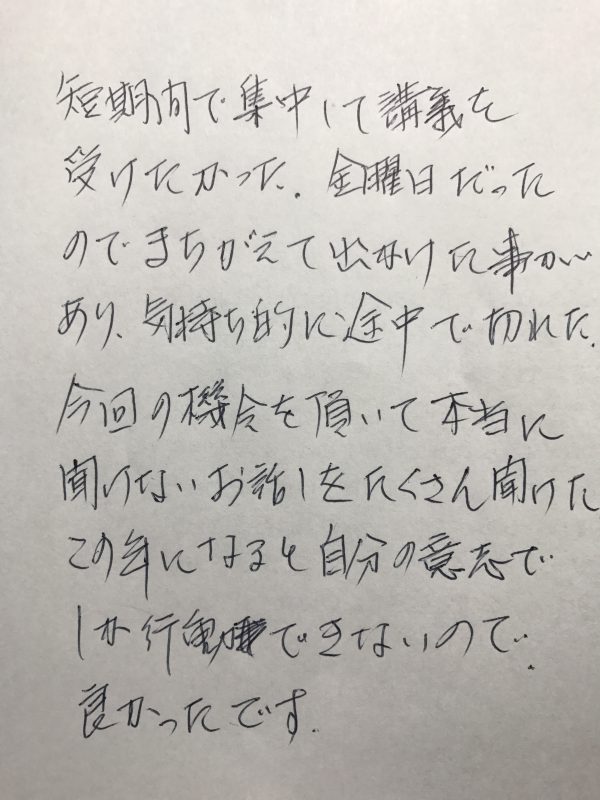 短期間で集中して講義を
受けたかった。金曜日だった
のでまちがえて出かけた事が
あり、気持ち的に途中で切れた。
今回の機会を頂いて本当に
聞けないお話しをたくさん聞けた
この年になると自分の意志で
しか行動できないので
良かったです。